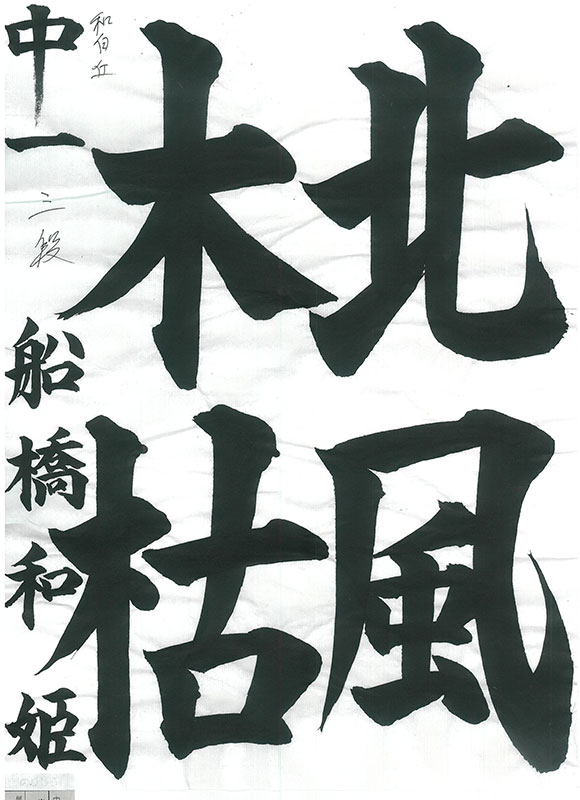 北風
木枯
和白丘
中一 三段 船橋和姫